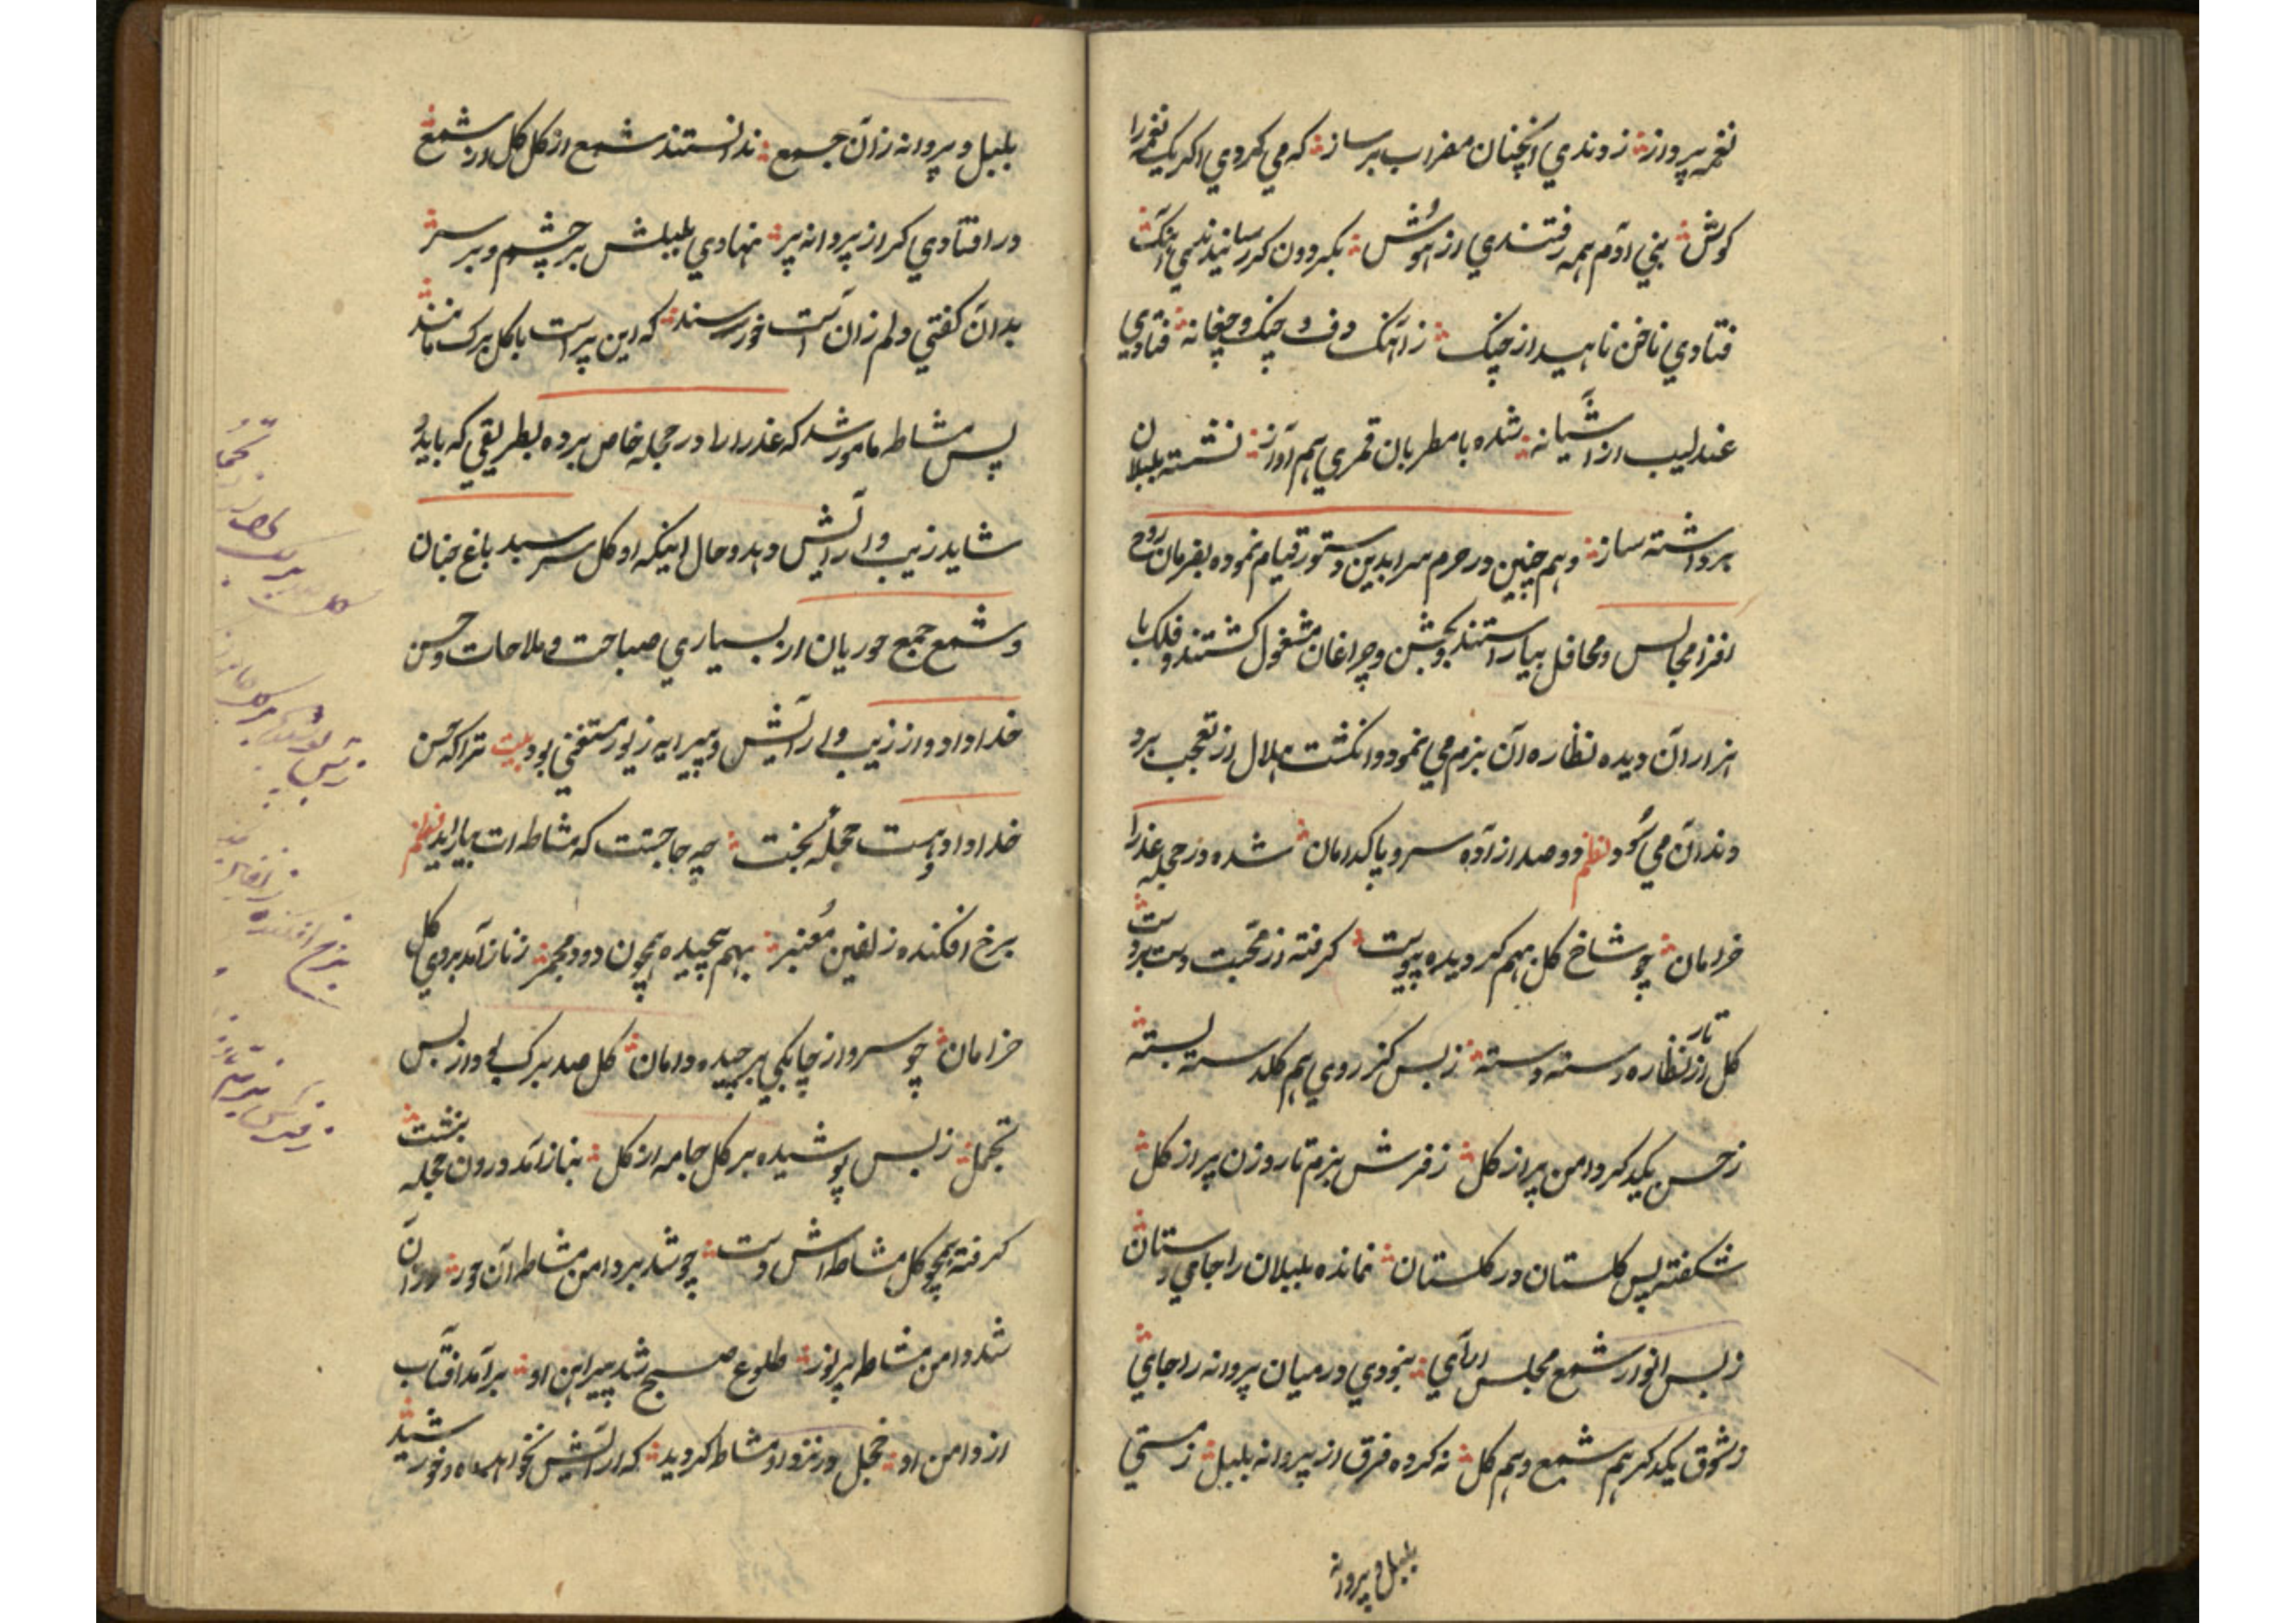 نغمه پرواز ؛ زوندي انچنان مضراب بر ساز ؛ که مي کردي اکر يک نغمه را
کوش ؛ بني آدم همه رفتندي از هوش ؛ بکردون کر رسانيدندي آهنک
فتادي ناخن ناهيد از چنک ؛ ز آهنک دف و چنک و چغانه ؛ فتادي
عندليب از آشيانه ؛ شده با مطربان قمري هم آواز ؛ نشسته بلبلان
برداشته ساز ؛ و هم چنين در حرم سرا بدين دستور قيام نموده بفرمان روح
افزا مجالس و محافل بياراستند بجشن و چراغان مشغول کشتند و فلک با
هزاران ديده نظاره آن بزم مي نمود و انکشت هلال از تعجب برد
دندان مي سود نظم دو صد ازآده سرو پاکدامان ؛ شده در حجله عذرا
خرامان ؛ چو شاخ کل بهم کرديده پيوست ؛ کرفته از محبت دست بر دست
کل از تار نظاره دسته دسته ؛ ز بس کز روي هم کلدسته بسته
ز حسن يکدکر دامن پر از کل ؛ ز فرش بزم تا روزن پر از کل
شکفته بس کلستان در کلستان ؛ نمانده بلبلان را جامي دستان
ز بس انوار شمع مجلس آراي ؛ بنودي در ميان پروانه را جاي
ز شوق يکدکر هم شمع و هم کل ؛ نه کرده فرق از پروانه بلبل ؛ ز مستي
بلبل و پروانه
بلبل و پروانه زان جمع ؛ ندانستند شمع از کل کل از شمع
در افتادي کر از پروانه پر ؛ نهادي بلبلش بر چشم و بر سر
بدان کفتي دلم زان است خورسند ؛ که اين پر است با کل برک مانند
پس مشاطه مامور شد که عذرا را در حجله خاص برده بطريقي که بايد و
شايد زيب و آرايش دهد و حال اينکه او کل سر سبد باغ جنان
و شمع جمع حوريان از بسياري صباحت و ملاحات و حسن
خداداد از زيب و آرايش و پيرايه زيور مستغني بود بيت ترا که حسن
خداداد هست و حجله بخت ؛ چه حاجتست که مشاطه ات بيارايد نظم
برخ افکنده زلفين معنبر ؛ بهم پيچيده همچون دود مجمر ؛ ز ناز آمد بروي کل
خرامان ؛ چو سرو از چابکي برچيده دامان ؛ کل صد برک بود از بس
تجمل ؛ ز بس پوشيده بر کل جامه از کل ؛ بناز آمد درون حجله بنشست
کرفته همچو کل مشاطه اش دست ؛ چو شد بر دامن مشاطه آن حور ؛ در آن
شد دامن مشاطه پر نور ؛ طلوع صبح شد پيراهن او ؛ بر آمد آفتاب
از دامن او ؛ خجل در نزد او مشاطه کرديد ؛ که آرايش نخواهد ماه و خورشيد